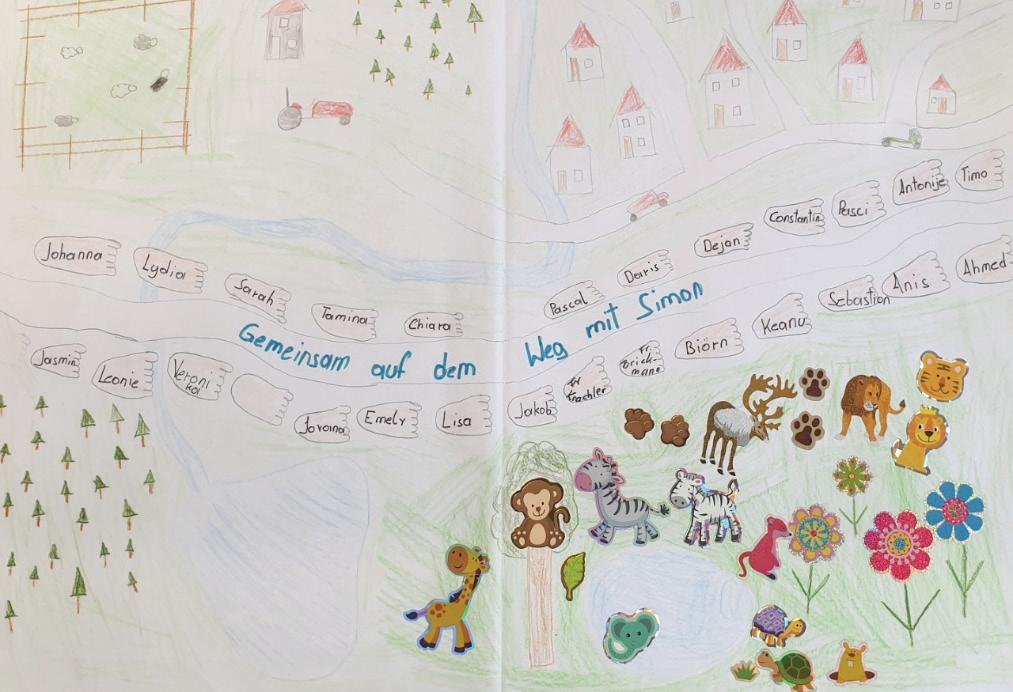 Johanna
Lydia
Sarah
Tamina
Chiara
Pascal
Daris
Dejan
Constantin
Pasci
Antonije
Timo
Gemeinsam auf dem Weg mit Simon
Jasmin
Leonie
Veroni
ka
Jovana
Emely
Lisa
Jakob
Fr
Krachler
Fr.
brick-
mann
Björn
Keanu
Sebastian
Anis
Ahmed